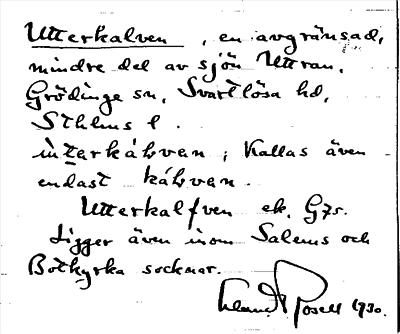 Utterkalven, en avgränsad,
mindre del av sjön Uttran,
Grödinge sn, Svartlösa hd,
Sthlms l.
ùterkáɫven; Kallas även
endast káɫven.
Utterkalfven ek. G7r.
Ligger även inom Salems och
Botkyrka socknar.
Rosell 1930.